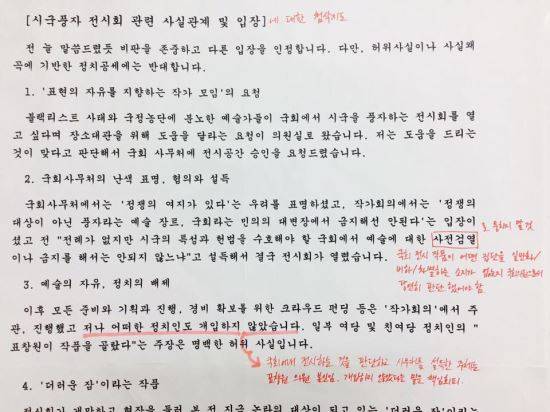 [시국풍자 전시회 관련 사실관계 및 입장]에 대한 첨삭지도
전 늘 말씀드렸듯 비판을 존중하고 다른 입장을 인정합니다. 다만, 허위사실이나 사실왜
곡에 기반한 정치공세에는 반대합니다.
1. '표현의 자유를 지향하는 작가 모임'의 요청
블랙리스트 사태와 국정농단에 분노한 예술가들이 국회에서 시국을 풍자하는 전시회를 열
고 싶다며 장소대관을 위해 도움을 달라는 요청이 의원실로 왔습니다. 저는 도움을 드리는
것이 맞다고 판단해서 국회 사무처에 전시공간 승인을 요청드렸습니다.
2. 국회사무처의 난색 표명, 협의와 설득
국회사무처에서는 '정쟁의 여지가 있다'는 우려를 표명하셨고, 작가회의에서는 '정쟁의
대상이 아닌 풍자라는 예술 장르, 국회라는 민의의 대변장에서 금지해선 안된다'는 입장이
셨고 전 "전례가 없지만 시국의 특성과 헌법을 수호해야 할 국회에서 예술에 대한 사전검열
이나 금지를 해서는 안되지 않느냐"고 설득해서 결국 전시회가 열렸습니다.
국회 전시 작품이 어떤 집단을 일반화/
비하/차별하는 소지가 없는지 국회
당연히 판단 했어야 함
3. 예술의 자유, 정치의 배제
이후 모든 준비와 기획과 진행, 경비 확보를 위한 크라우드 펀딩 등은 '작가회의'에서 주
관, 진행했고 저나 어떠한 정치인도 개입하지 않았습니다. 일부 여당 및 친여당 정치인의 "
표창원이 작품을 골랐다"는 주장은 명백한 허위 사실입니다.
국회에서 전시하는 것을 판단하고 사무처를 설득한 주체는
표창원 의원 본인임. 개입하지 않았다는 말은 책임회피.
4. '더러운 잠'이라는 작품
전시회가 개막하고 현장을 둘러 본 전 지금 논란의 대상이 되고 있는 '더러운 잠'이라는